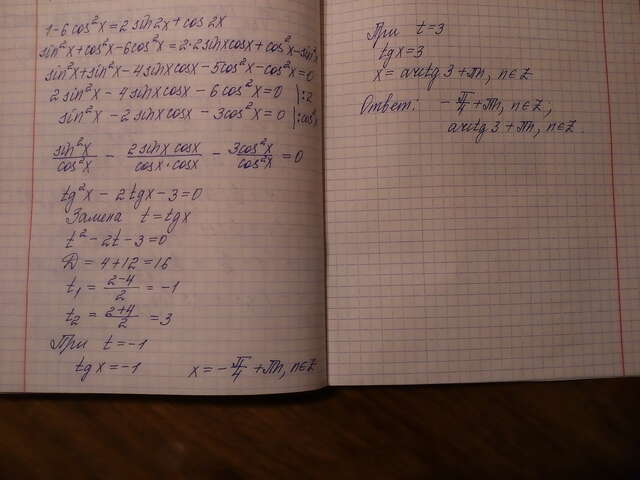 1-6cos²x=2sin2x+cos2x
sin²x+cos²x-6cos²x=2·2sinxcosx+cos²x-sin²x
sin²x+sin²x-4sinxcosx-5cos²x-cos²x=0
2sin²x-4sinxcosx-6cos²x=0 |:2
sin²x-2sinxcosx-3cos²x=0 |:cos²x
sin²x/cos²x - 2sinxcosx/cosx·cosx - 3cos²x/cos²x =0
tg²x-2tgx-3=0
Замена t=tgx
t²-2t-3=0
D=4+12=16
t₁=(2-4)/2=-1
t₂=(2+4)/2=3
При t=-1
tgx=-1 x=-π/4+πn, n∈Z
При t=3
tgx=3
x=arctg3+πn, n∈Z
Ответ: -π/4+πn, n∈Z,
arctg3+πn, n∈Z.